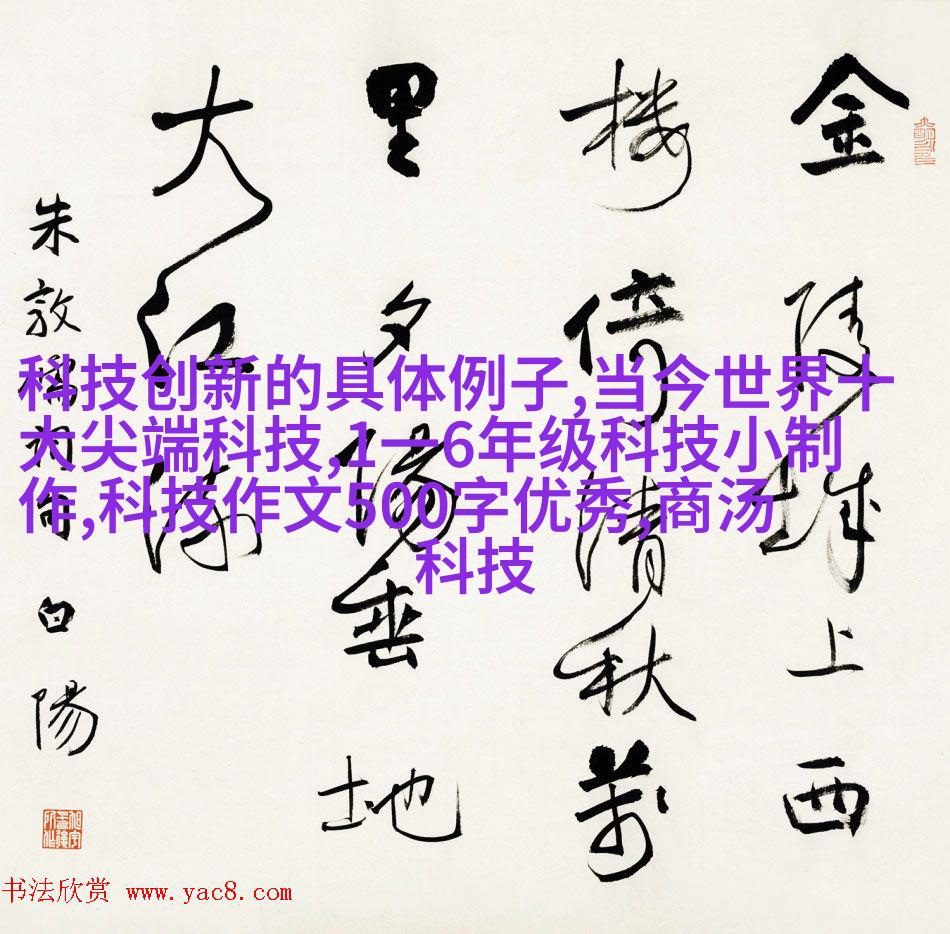 金陵城上西
楼倚清秋万
里夕阳垂地
大江流
朱敦儒词句 白阳
科技创新的具体例子,当今世界十
大尖端科技,1一6年级科技小制
作,科技作文500字优秀,商汤
科技
书法欣赏 www.yac8.com